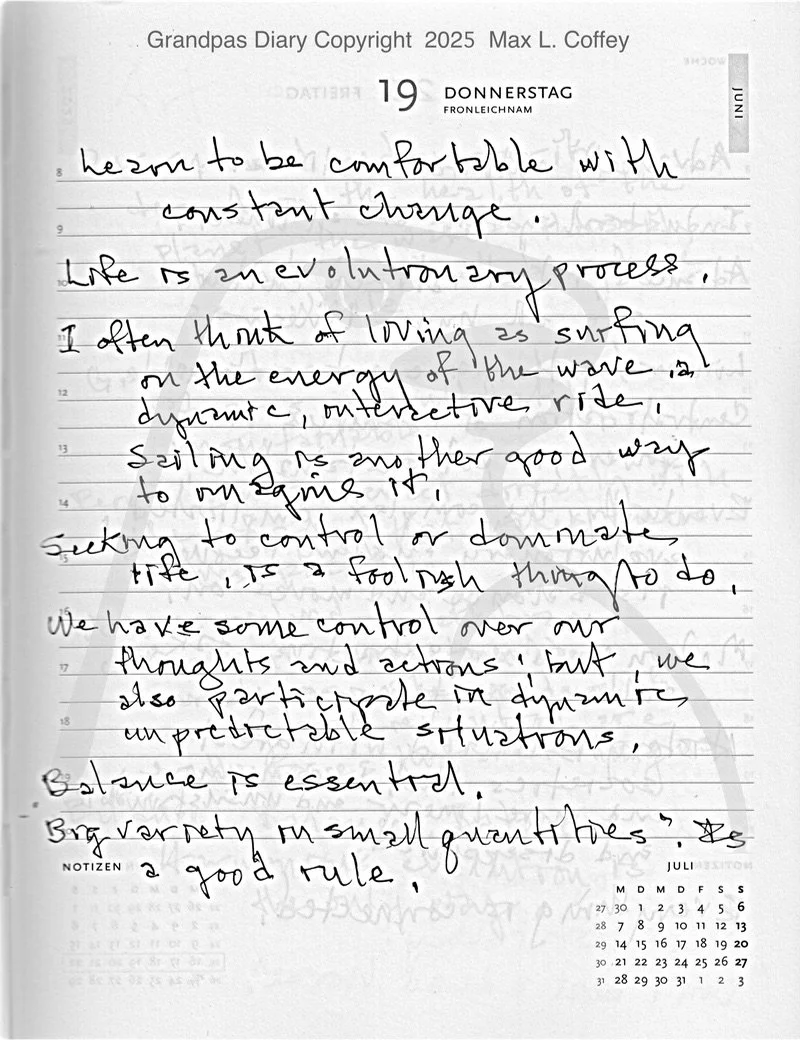 Grandpas Diary Copyright 2025 Max L. Coffey
WOCHE
FREITAG
19 DONNERSTAG
FRONLEICHNAM
JUNI
8
Learn to be comfortable with
constant change.
9
Life is an evolutionary process.
10
I often think of living as surfing
11
on the energy of the wave. a
12
dynamic, interactive ride.
13
Sailing is another good way
to imagine it.
14
Seeking to control or dominate
15
life, is a foolish thing to do.
16
We have some control over our
thoughts and actions, but, we
17
also participate in dynamic
18
unpredictable situations.
Balance is essential.
Big variety in small quantities". Is
NOTIZEN a good rule.
JULI
M D M D F S S
27 30 1 2 3 4 5 6
28 7 8 9 10 11 12 13
29 14 15 16 17 18 19 20
30 21 22 23 24 25 26 27
31 28 29 30 31 1 2 3